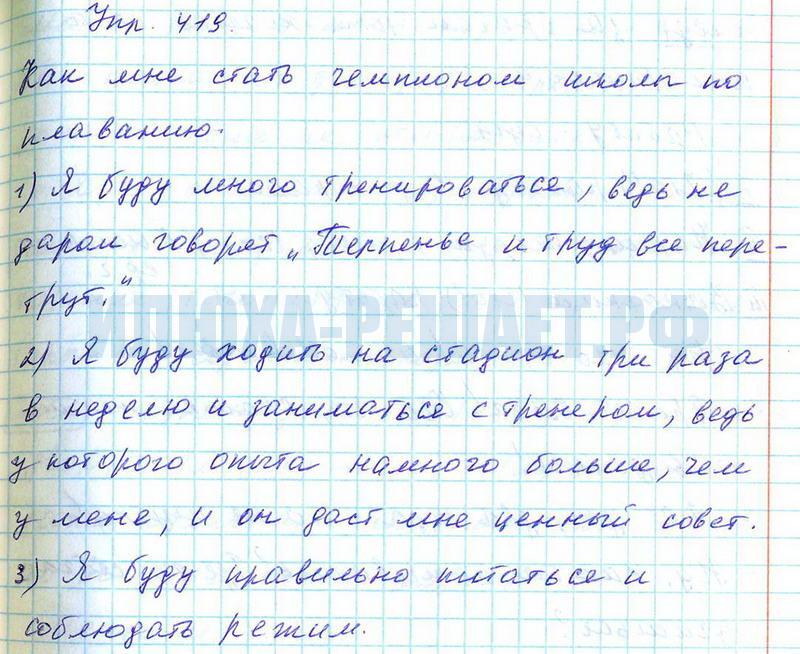 Упр. 419.
Как мне стать чемпионом школы по
плаванию.
1) Я буду много тренироваться, ведь не
даром говорят „Терпенье и труд все пере-
трут."
ИЛЮХА-РЕШАЕТ.РФ
2) Я буду ходить на стадион три раза
в неделю и заниматься с тренером, ведь
у которого опыта намного больше, чем
у меня, и он даст мне ценный совет.
3) Я буду правильно питаться и
соблюдать режим.